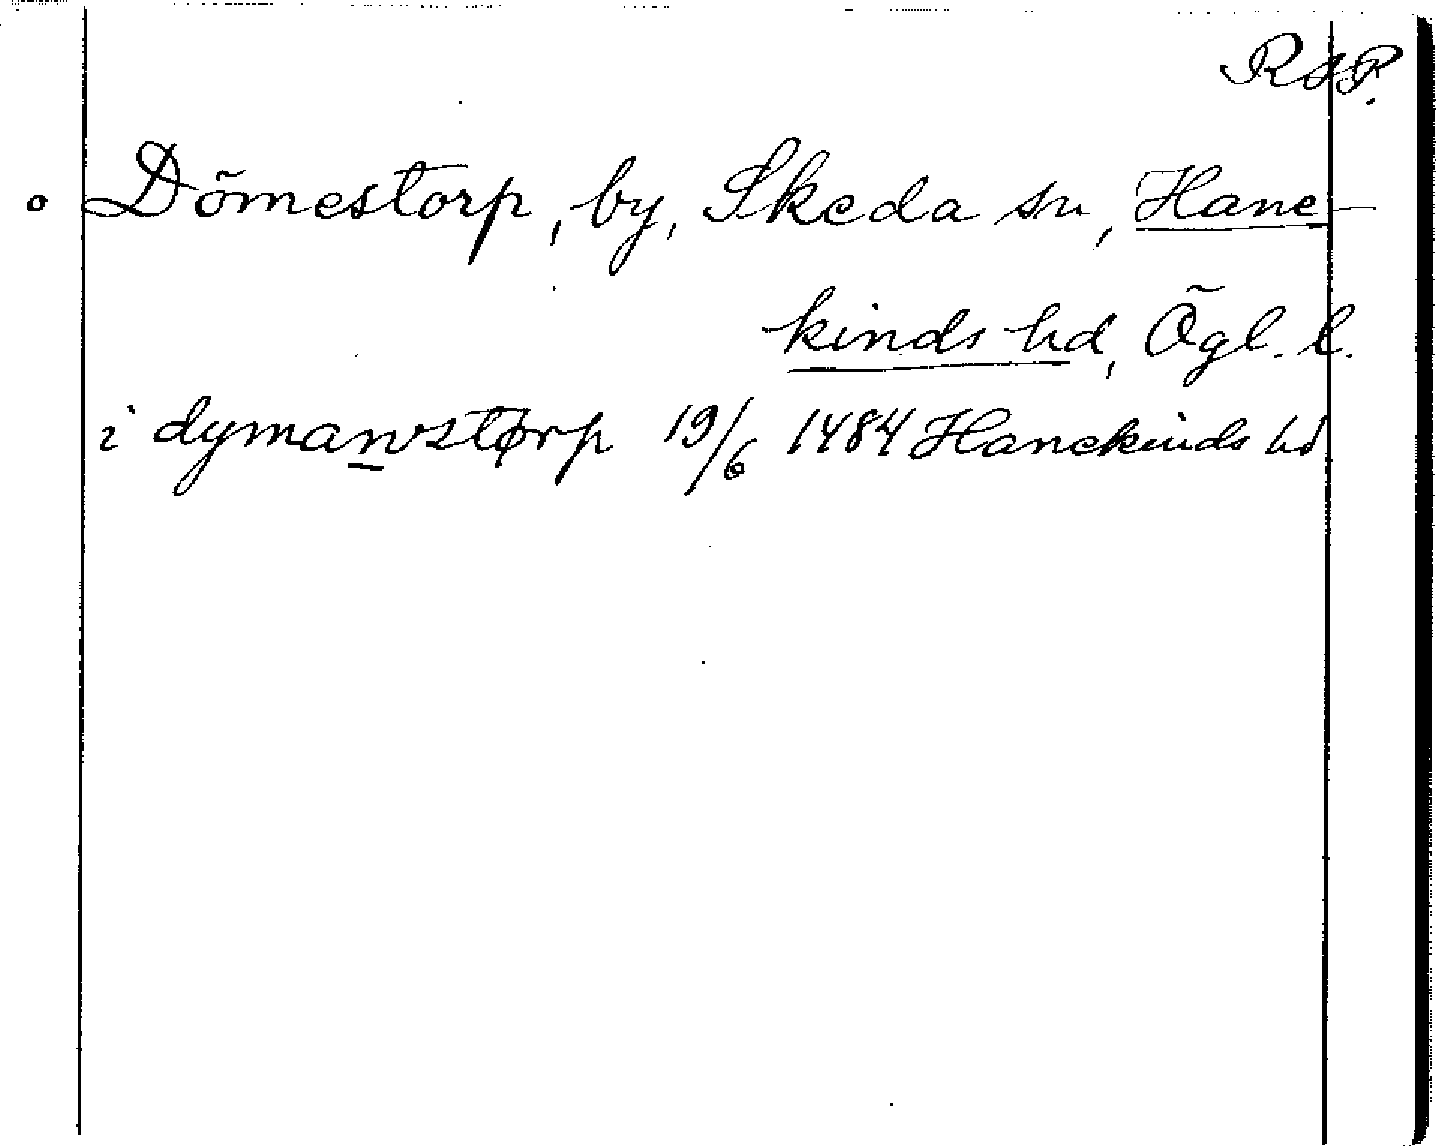 RAP.
o Dömestorp, by, Skeda sn, Hane-
kinds hd, Ögl. l.
i dymanstørp 19/6 1484 Hanekinds hd